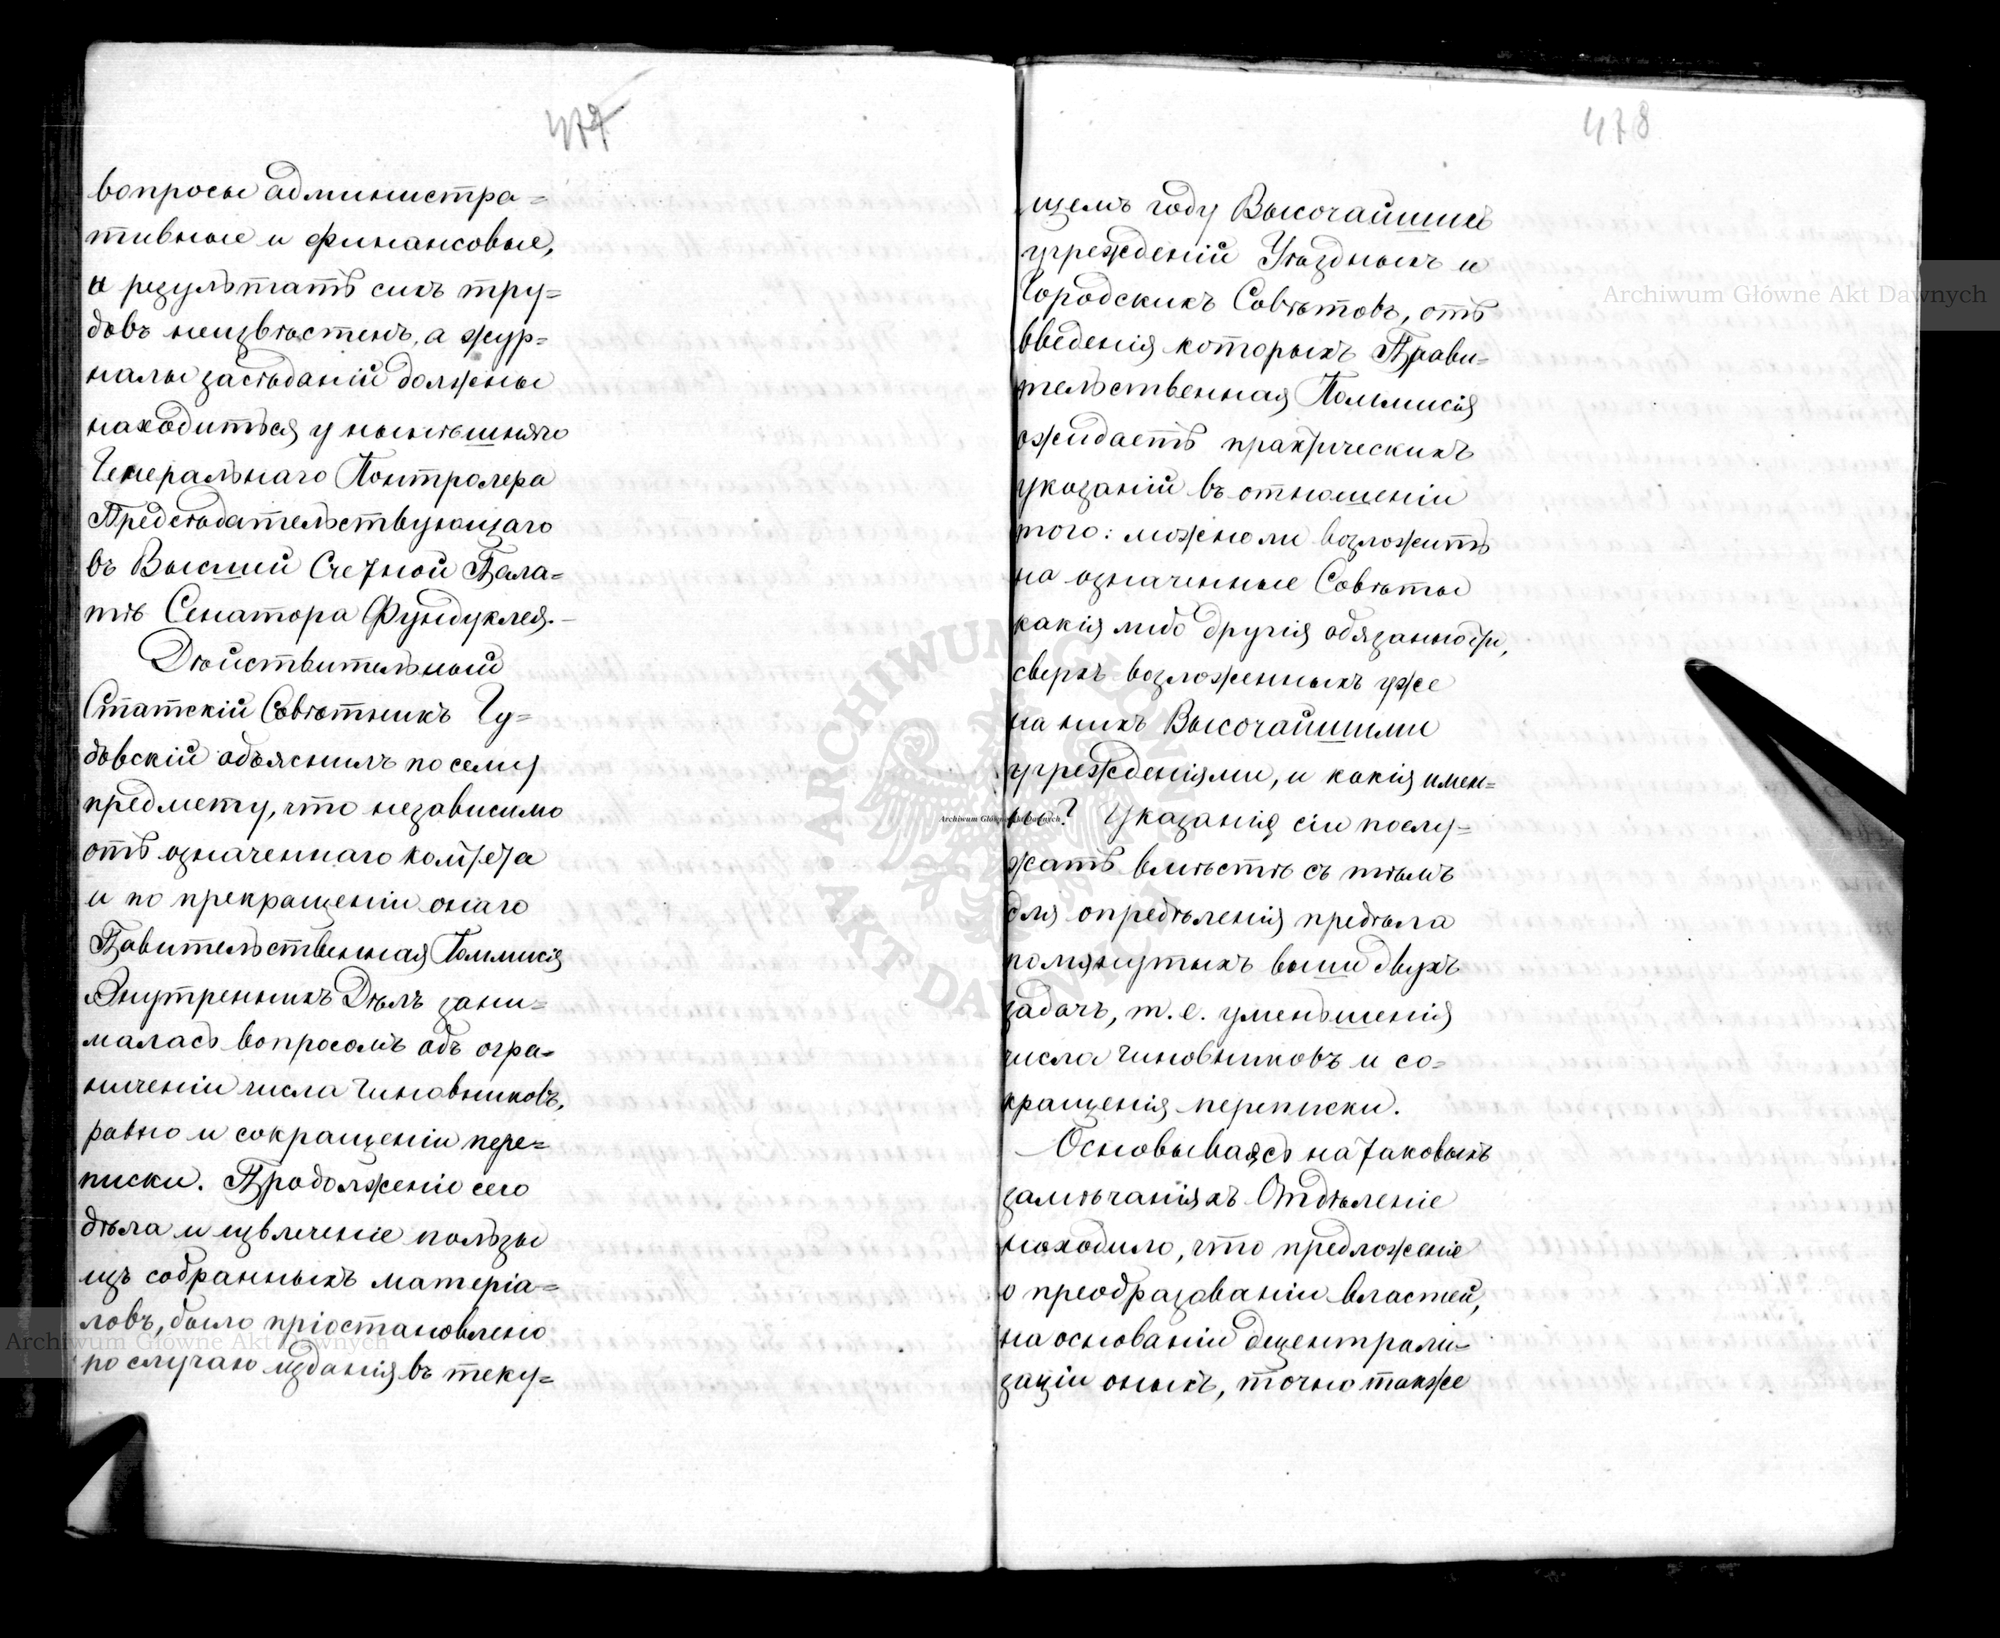 477
вопросы администра=
тивные и финансовые,
и результатъ сихъ тру=
довъ неизвѣстенъ, а жур=
налы засѣданій должны
находиться у нынѣшняго
Генеральнаго Контролера
Предсѣдательствующаго
въ Высшей Счетной Пала=
тѣ Сенатора Фундуклея.—
Дѣйствительный
Статскій Совѣтникъ Гу=
бовскій объяснилъ по сему
предмету, что независимо
отъ означеннаго комитета
и по прекращеніи онаго
Правительственная Коммисія
Внутреннихъ Дѣлъ зани=
малась вопросомъ объ огра=
ниченіи числа чиновниковъ,
равно и сокращеніи пере=
писки. Продолженіе сего
дѣла и извлеченіе пользы
изъ собранныхъ матеріа=
ловъ, было пріостановлено
по случаю изданія въ теку=
478
щемъ году Высочайшихъ
учрежденій Уѣздныхъ и
Городскихъ Совѣтовъ, отъ
введенія которыхъ Прави=
тельственная Коммисія
ожидаетъ практическихъ
указаній въ отношеніи
того: можно ли возложить
на означенные Совѣты
какія либо другія обязанности,
сверхъ возложенныхъ уже
на нихъ Высочайшими
учрежденіями, и какія имен=
но? Указанія сіи послу=
жатъ вмѣстѣ съ тѣмъ
для опредѣленія предѣла
помянутыхъ выше двухъ
задачъ, т. е. уменьшенія
числа чиновниковъ и со=
кращенія переписки.
Основываясь на таковыхъ
замѣчаніяхъ Отдѣленіе
находило, что предложеніе
о преобразованіи властей,
на основаніи децентрали=
заціи оныхъ, точно также
Archiwum Główne Akt Dawnych
Archiwum Główne Akt Dawnych
Archiwum Główne Akt Dawnych
ARCHIWUM GŁÓWNE AKT DAWNYCH